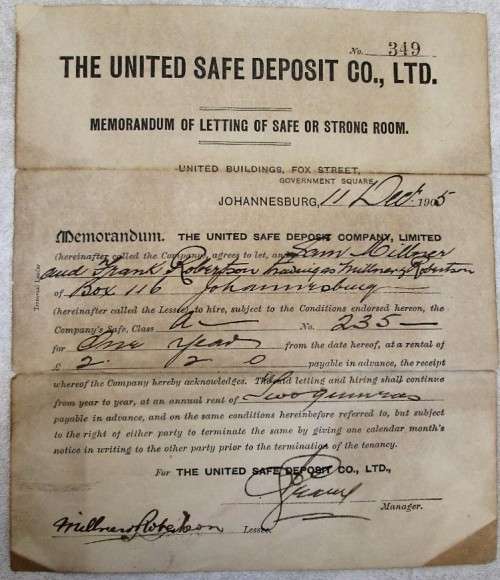 No. 349
THE UNITED SAFE DEPOSIT CO., LTD.
MEMORANDUM OF LETTING OF SAFE OR STRONG ROOM.
UNITED BUILDINGS, FOX STREET,
GOVERNMENT SQUARE
JOHANNESBURG, 11 Dec. 1905
Memorandum. THE UNITED SAFE DEPOSIT COMPANY, LIMITED
(hereinafter called the Company) agrees to let, and Sam Millner
and Frank Robertson trading as Millner & Robertson
of Box 116 Johannesburg
(hereinafter called the Lessee) to hire, subject to the Conditions endorsed hereon, the
Company's Safe, Class A No. 235
for One year from the date hereof, at a rental of
£ 2. 2 0 payable in advance, the receipt
whereof the Company hereby acknowledges. The said letting and hiring shall continue
from year to year, at an annual rent of Two guineas
payable in advance, and on the same conditions hereinbefore referred to, but subject
to the right of either party to terminate the same by giving one calendar month's
notice in writing to the other party prior to the termination of the tenancy.
For THE UNITED SAFE DEPOSIT CO., LTD.,
Manager.
Millner & Robertson Lessee.